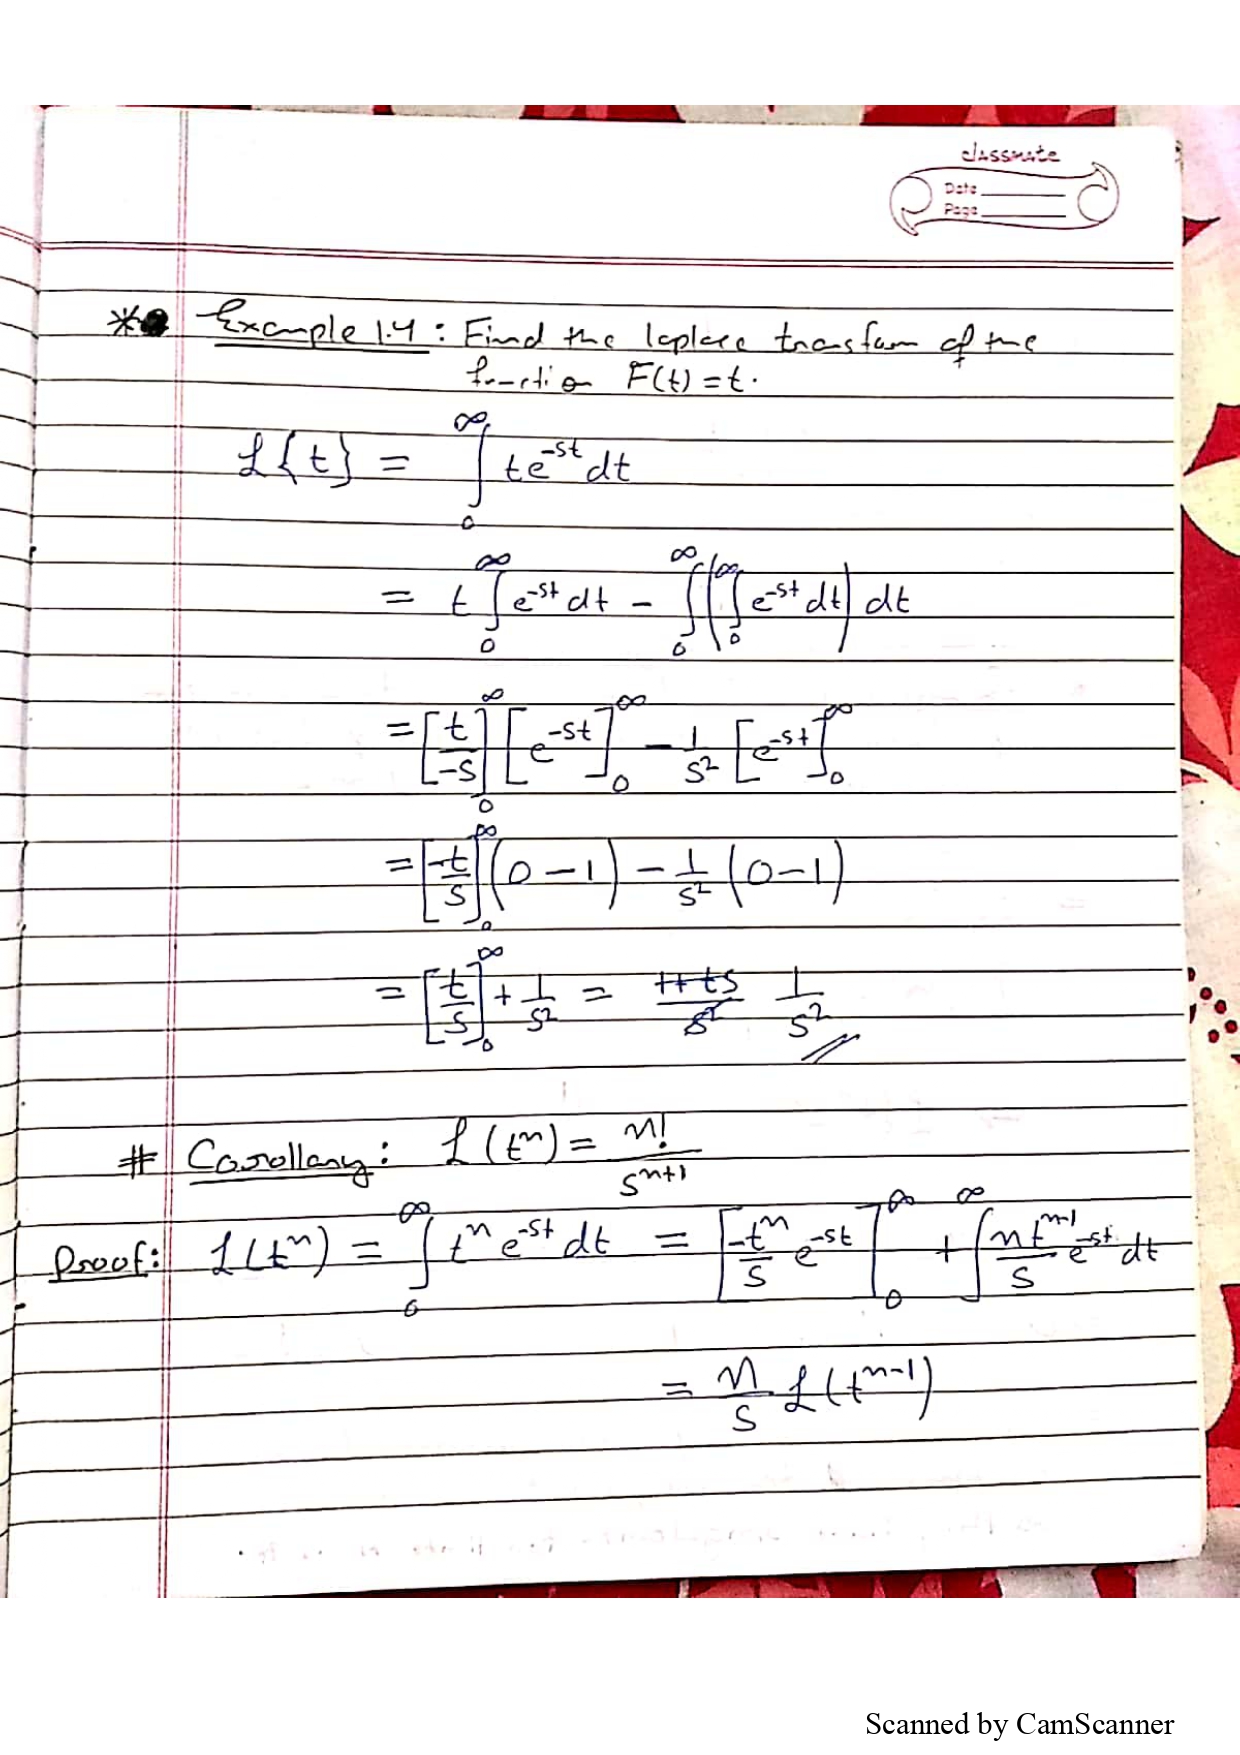 classmate
Date
Page
* Example 1.4 : Find the laplace transform of the
function F(t) = t.
ℒ{t} = ∫₀^∞ t e^{-st} dt
= t ∫₀^∞ e^{-st} dt - ∫₀^∞ (∫₀^∞ e^{-st} dt) dt
= [t/-s]₀^∞ [e^{-st}]₀^∞ - 1/s² [e^{-st}]₀^∞
= [-t/s]₀^∞ (0-1) - 1/s² (0-1)
= [t/s]₀^∞ + 1/s² = 1/s²
# Corollary: ℒ(tⁿ) = n!/s^{n+1}
Proof: ℒ(tⁿ) = ∫₀^∞ tⁿ e^{-st} dt = [-tⁿ/s e^{-st}]₀^∞ + ∫^∞ n t^{n-1}/s e^{-st} dt
= n/s ℒ(t^{n-1})
Scanned by CamScanner